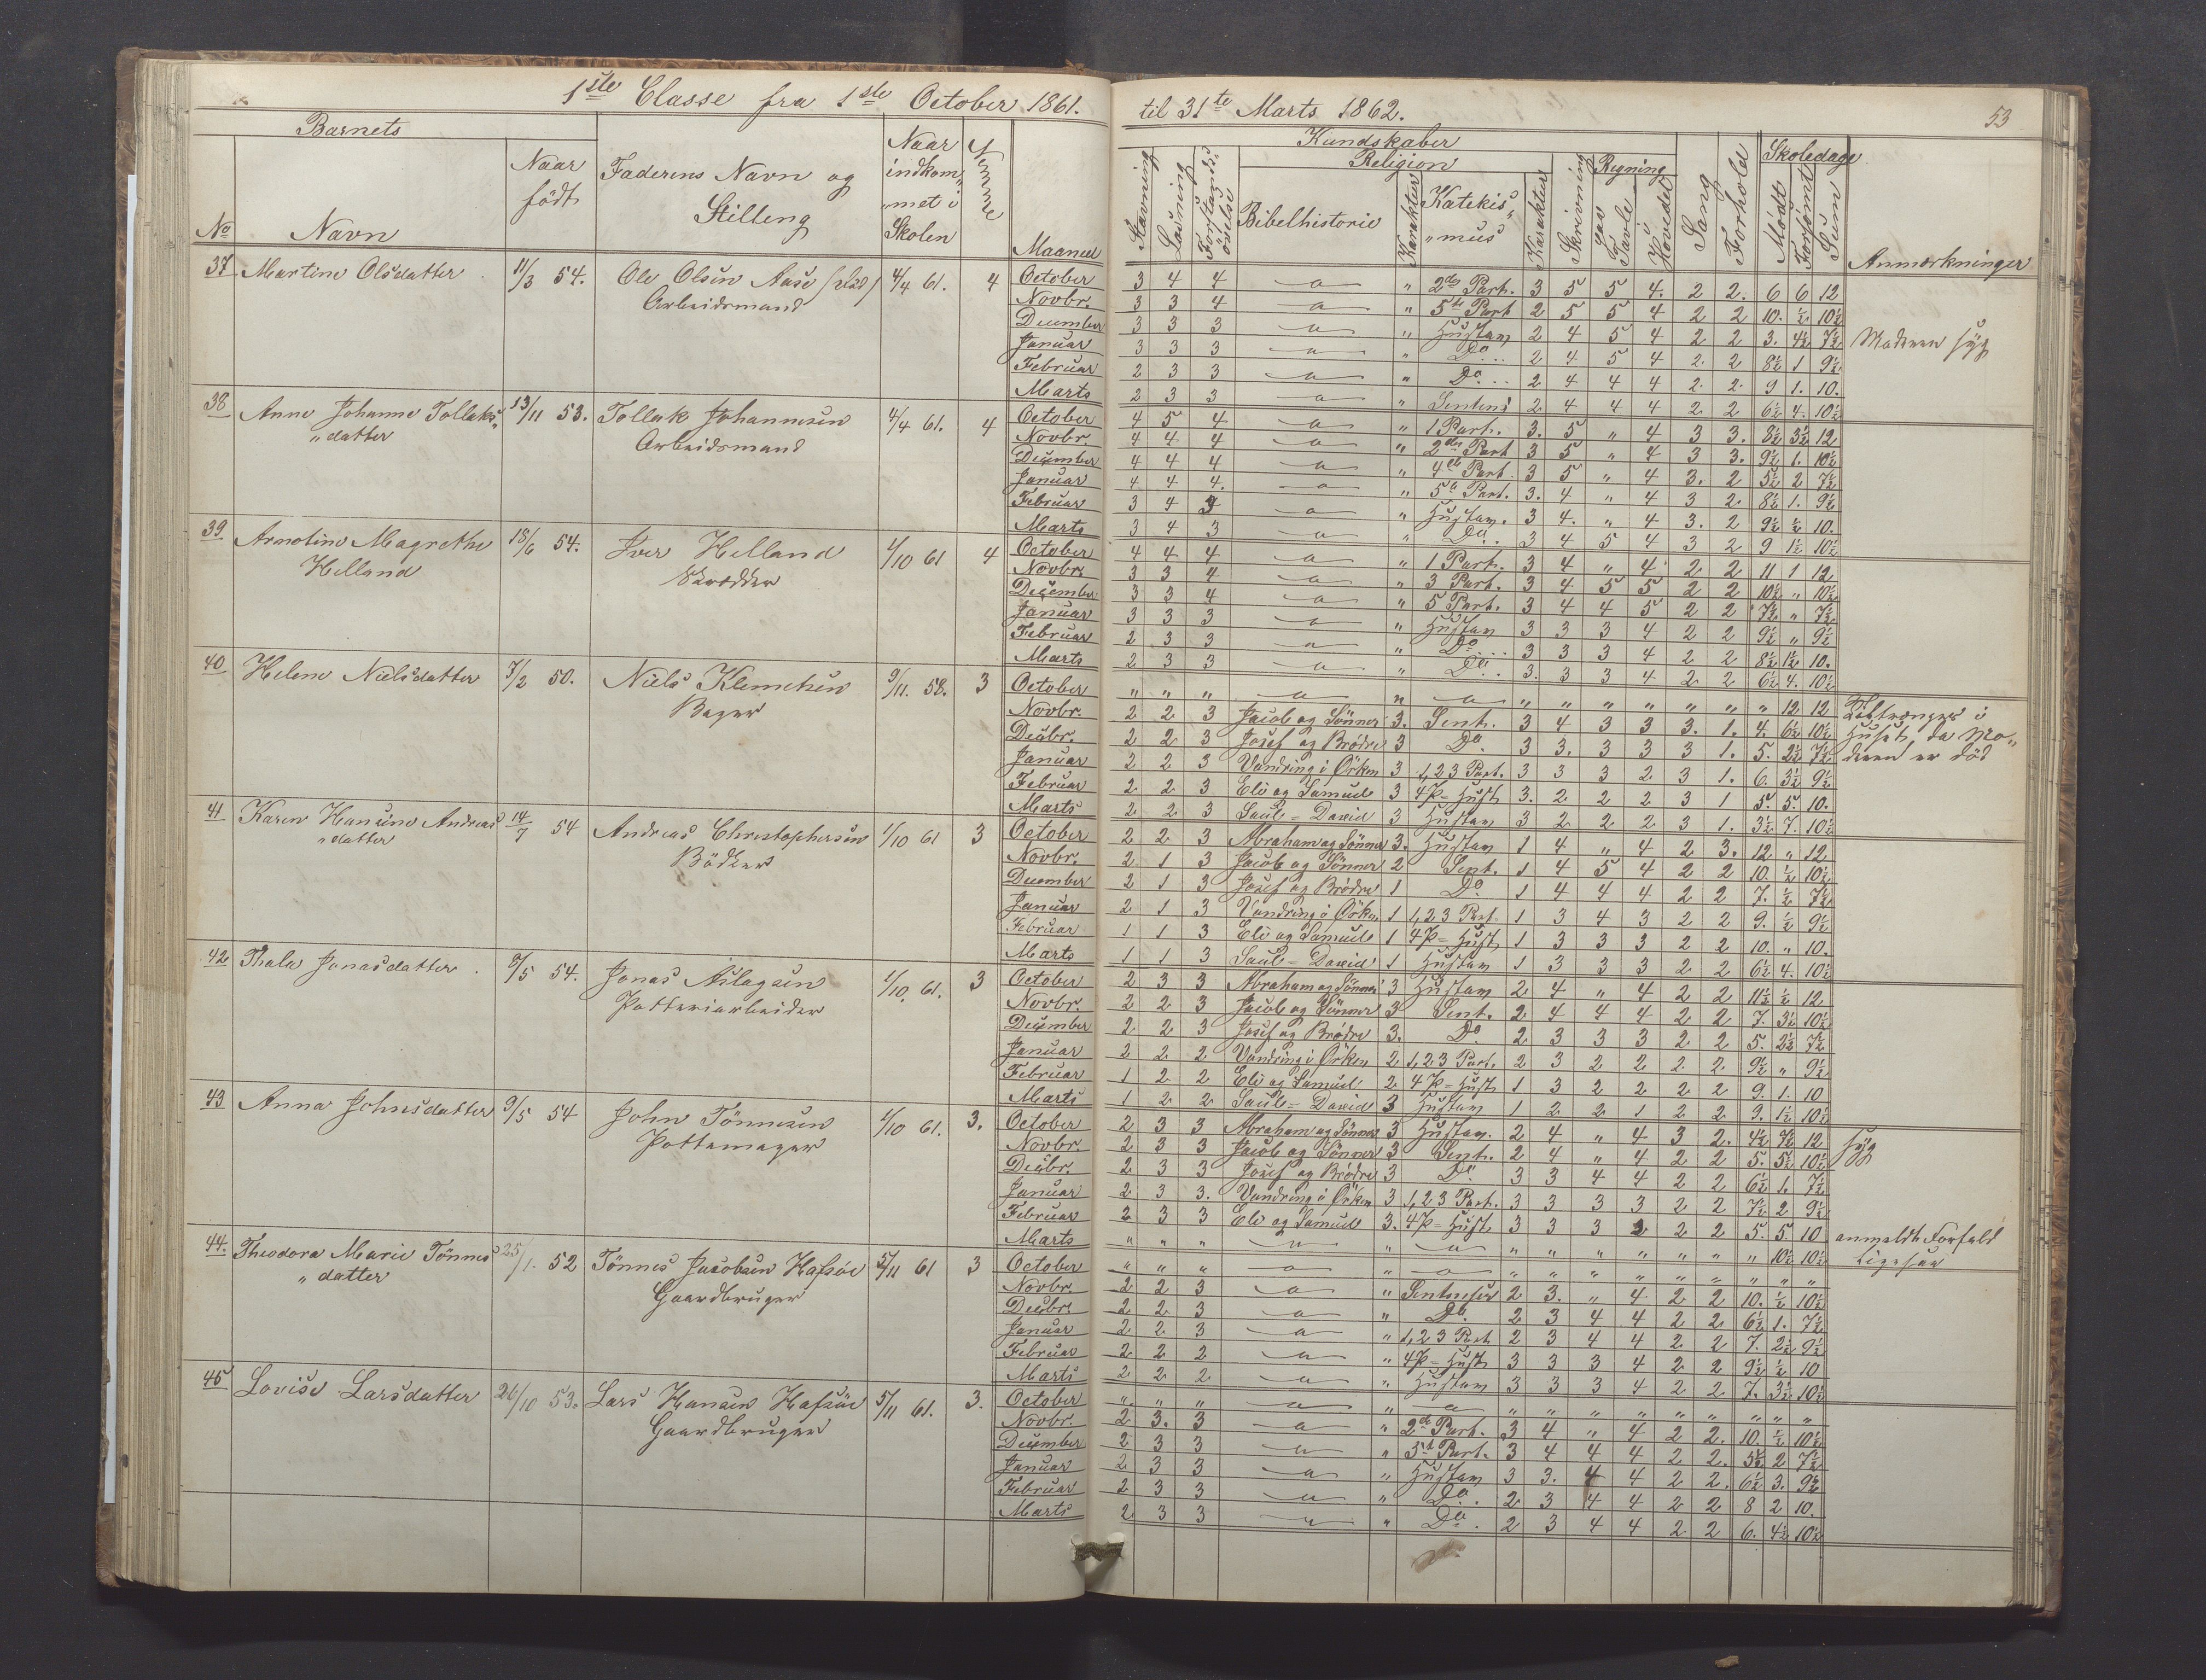 1ste Classe fra 1ste October 1861.
til 31te Marts 1862.
53
Barnets
No
Navn
Naar
født
Faderens Navn og
Stilling
Naar
indkom„
„met i
Skolen
Maaned
Kundskaber
Stavning
Læsning
Religion
Bibelhistorie
Karakter
Katekis„
„mus
Karakter
Skrivning
Regning
paa
Tavle
i
Hovedet
Sang
Forhold
Skoledage
Mödt
Forsömt
Sum
Anmærkninger
37 Martine Olsdatter 11/3 54. Ole Olsen Aase 4/4 61. 4
Arbeidsmand
October 3 4 4 " 2den Part. 3 5 5 4. 2 2. 6 6 12
Novbr. 3 3 4 " 5te Part 2 5 5 4 2 2 10. ½ 10½
December 3 3 3 " 2 4 5 4 2 2 3. 4½ 7½ Moderen syg
Januar 3 3 3 " Do 2 4 5 4 2 2 8½ 1 9½
Februar 2 3 3 " Do 2 4 4 4 2 2 9 1. 10.
Marts 2 3 3 " 2 4 4 4 2 2 6½ 4. 10½
38 Anne Johanne Tollaks„ 13/11 53. Tollak Johannesen 4/4 61. 4
„datter Arbeidsmand
October 4 5 4 " 1 Part. 3. 5 " 4 3 3. 8½ 3½ 12
Novbr. 4 4 4 " 2den Part 3 5 " 4 3 3. 9½ 1. 10½
December 4 4 4 " 4de Part 3 5 " 4 3. 2 5½ 2 7½
Januar 4 4 4. " 5te Part. 3. 4 " 4 3 2 8½ 1. 9½
Februar 3 4 " 3 4. " 4 3. 2 9½ ½ 10.
Marts 3 4 3 " Do 3 4 5 4 3 2 9 1½ 10½
39 Arnotine Magrethe 18/6 54. Iver Helland 1/10 61 4
Helland Skrædder
October 4 4 4 " 1 Part. 3 4 " 4 2 2 11 1 12
Novbr. 3 3 4 " 3 Part. 3 4 5 5 2 2 10½ " 10½
December 3 3 4 " 5 Part. 3 4 4 5 2 2 7½ " 7½
Januar 3 3 3 " 3 3 3 4 2 2 9½ " 9½
Februar 2 3 3 " Do 3 3 3 4 2 2 8½ 1½ 10.
Marts 2 3 3 " Do 3. 3 3 4 2 2 6½ 4. 10½
40 Helene Nielsdatter 7/2 50. Niels Klemetsen 9/11. 58. 3
Bager
October " " " " " " " " " " " 12 12
Novbr. 2 2 3 Jacob og Sönner 3. Sent. 3 4 3 3 3. 1. 4. 6½ 10½ Huset, da Mo„
Decbr. 2 2 3 Josef og Brödre 3 Do 3 3. 3 3 3 1. 5. 2½ 7½ deren er död
Januar 2 2 3 Vandring i Örken 3 1,2 3 Part. 3 3 3 2 3 1. 6. 3½ 9½
Februar 2 2 3 Eli og Samuel 3 3. 2 2 2 3 1 5. 5. 10.
Marts 2 2 3 Saul - David 3 3 2 2 2 3 1. 3½ 7. 10½
41 Karen Hansine Andreas 14/7 54 Andreas Christophersen 1/10 61 3
„datter Bödker
October 2 2 3 Abraham og Sönner 3. 1 4 " 4 2 3. 12 " 12
Novbr. 2 1 3 Jacob og Sönner 2 Sent. 1 4 5 4 2 2 10. ½ 10½
December 2 1 3 Josef og Brödre 1 Do 1 4 4 4 2 2 7. ½ 7½
Januar 2 1 3 Vandring i Örken 1 1,2 3 Part. 1 3 4 3 2 2 9. ½ 9½
Februar 1 1 3 Eli og Samuel 1 1 3 3 3 2 2 10. " 10.
Marts 1 1 3 Saul - David 1 1 3 3 3 2 2 6½ 4. 10½
42 Thala Jonasdatter 8/5 54. Jonas Aslagsen 1/10. 61. 3
Potteriarbeider
October 2 3 3 Abraham og Sönner 3 2 4 " 4 2 2 11½ ½ 12
Novbr. 2 2 3 Jacob og Sönner 3 Sent. 2 4 4 4 2 2 7. 3½ 10½
December 2 2 3 Josef og Brödre 3. Do 2 3 3 3 2 2 5. 2½ 7½
Januar 2 2 2 Vandring i Örken 2 1,2 3 Part. 2 3 2 2 2 2 9½ " 9½
Februar 1 2 2 Eli og Samuel 2 1 3 2 2 2 2 9. 1. 10
Marts 1 2 2 Saul - David 3 1 2 2 1 2 2 9. 1½ 10½
43 Anna Johnsdatter 9/5 54 John Tönnesen 1/10 61. 3.
Pottemager
October 2 3 3 Abraham og Sönner 3 2 4 " 4 3 2. 4½ 7½ 12 syg
Novbr. 2 3 3 Jacob og Sönner 3 Sent. 2 4 " 4 2 2 5. 5½ 10½
Decbr. 2 3 3 Josef og Brödre 3 Do 3 3 4 4 2 2 6½ 1. 7½
Januar 2 3 3. Vandring i Örken 3 1,2 3 Part. 3 3 3 3 2 2 7½ 2 9½
Februar 2 3 3 Eli og Samuel 3. 3 3 3 2 2 5. 5 10 anmeldt Forfald
Marts " " " " " " " " " " " 10½ 10½ ligesaa
44. Theodora Marie Tönnes 25/1. 52 Tönnes Jacobsen Hafsöe 5/11 61 3
„datter Gaardbruger
October " " " " " " " " " " " " "
Novbr. 2 2 3 " Sentenser 2 3. " 4 2 2 10. ½ 10½
Decbr. 2 2 3 " Do. 2 3 4 4 2 2 6½ 1. 7½
Januar 2 2 3 " 1,2 3 Part 2 3 4 4 2 2 7. 2½ 9½
Februar 2 2 2 " 3 3 3 4 2 2 9½ ½ 10
Marts 2 2 2 " 3 3 3 4 2 2 7. 3½ 10½
45 Lovise Larsdatter 26/10 53. Lars Hansen Hafsöe 5/11 61. 3.
Gaardbruger
October " " " " " " " " " " " " "
Novbr. 2 3. 3 " 2de Part. 3 4 " 4 2 2. 10. ½ 10½
December 2 3 3 " Part. 3 4 4 4 2 2. 5½ 2 7½
Januar 2 3 3 " 3 3. 4 4 2 2. 6½ 3. 9½
Februar 2 3 3 " Do. 2 3 4 4 2 2 8 2 10.
Marts 2 3 3 " Do. 2 3 4 4 2 2 6. 4½ 10½